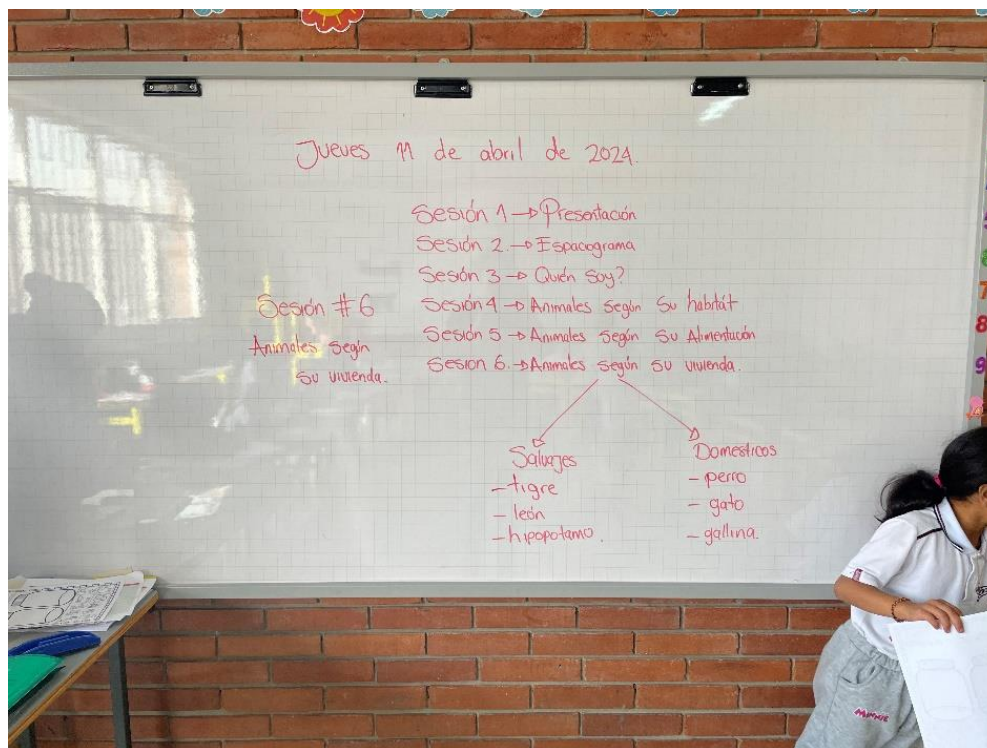 Jueves 11 de abril de 2024.
Sesión 1 → Presentación
Sesión 2. → Espaciograma
Sesión 3 → Quién soy?
Sesión 4 → Animales según su habitát
Sesión 5 → Animales según su Alimentación
Sesion 6. → Animales según su vivienda.
Sesión # 6
Animales según
su vivienda.
Salvajes
- tigre
- león
- hipopotamo.
Domesticos
- perro
- gato
- gallina.
7
8
9
MINNIE